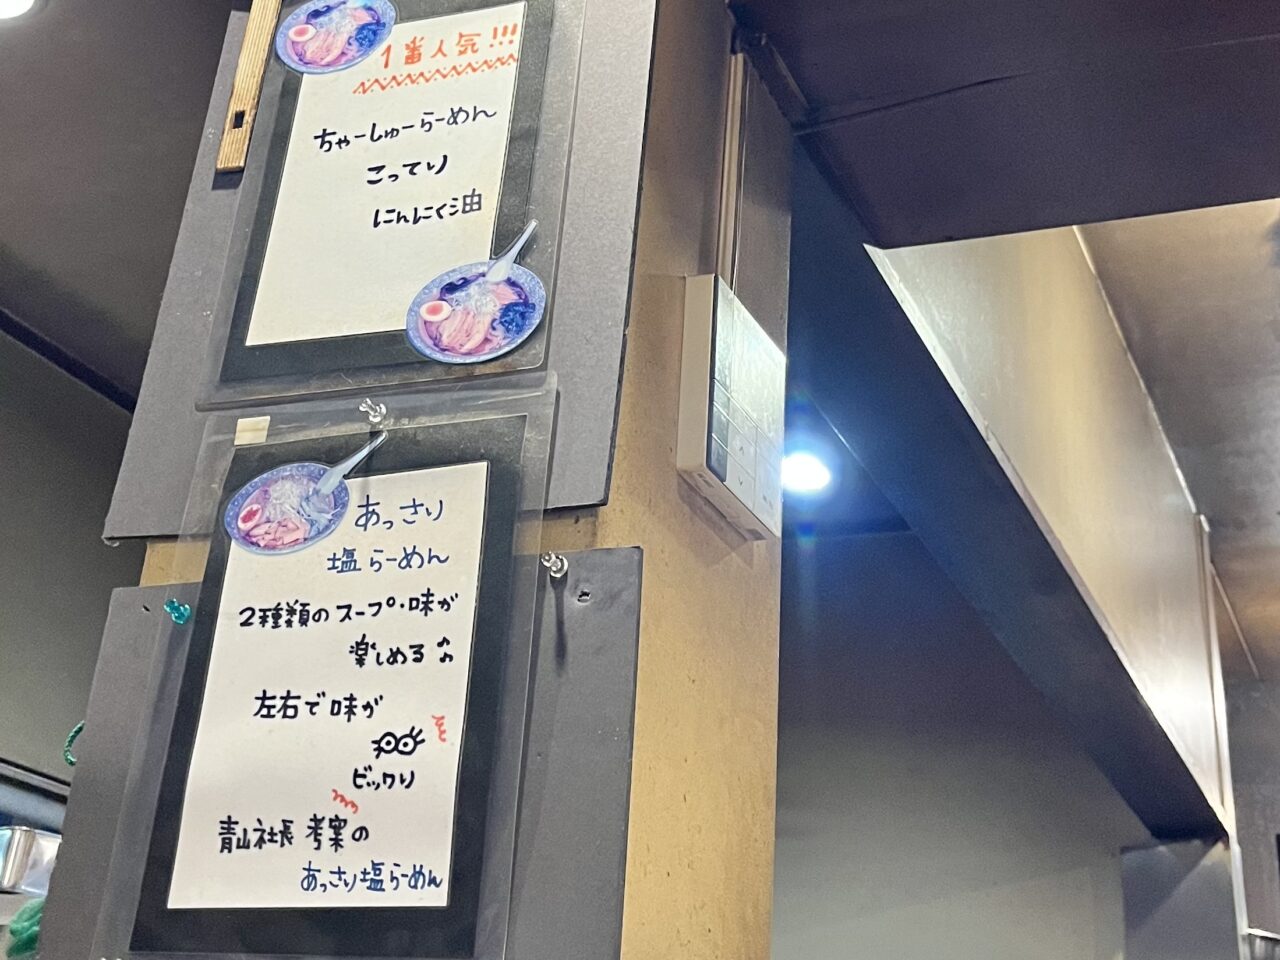 1番人気!!!
ちゃーしゅーらーめん
こってり
にんにく油
あっさり
塩らーめん
2種類のスープ・味が
楽しめる♪
左右で味が
ビックリ
青山社長 考案の
あっさり塩らーめん